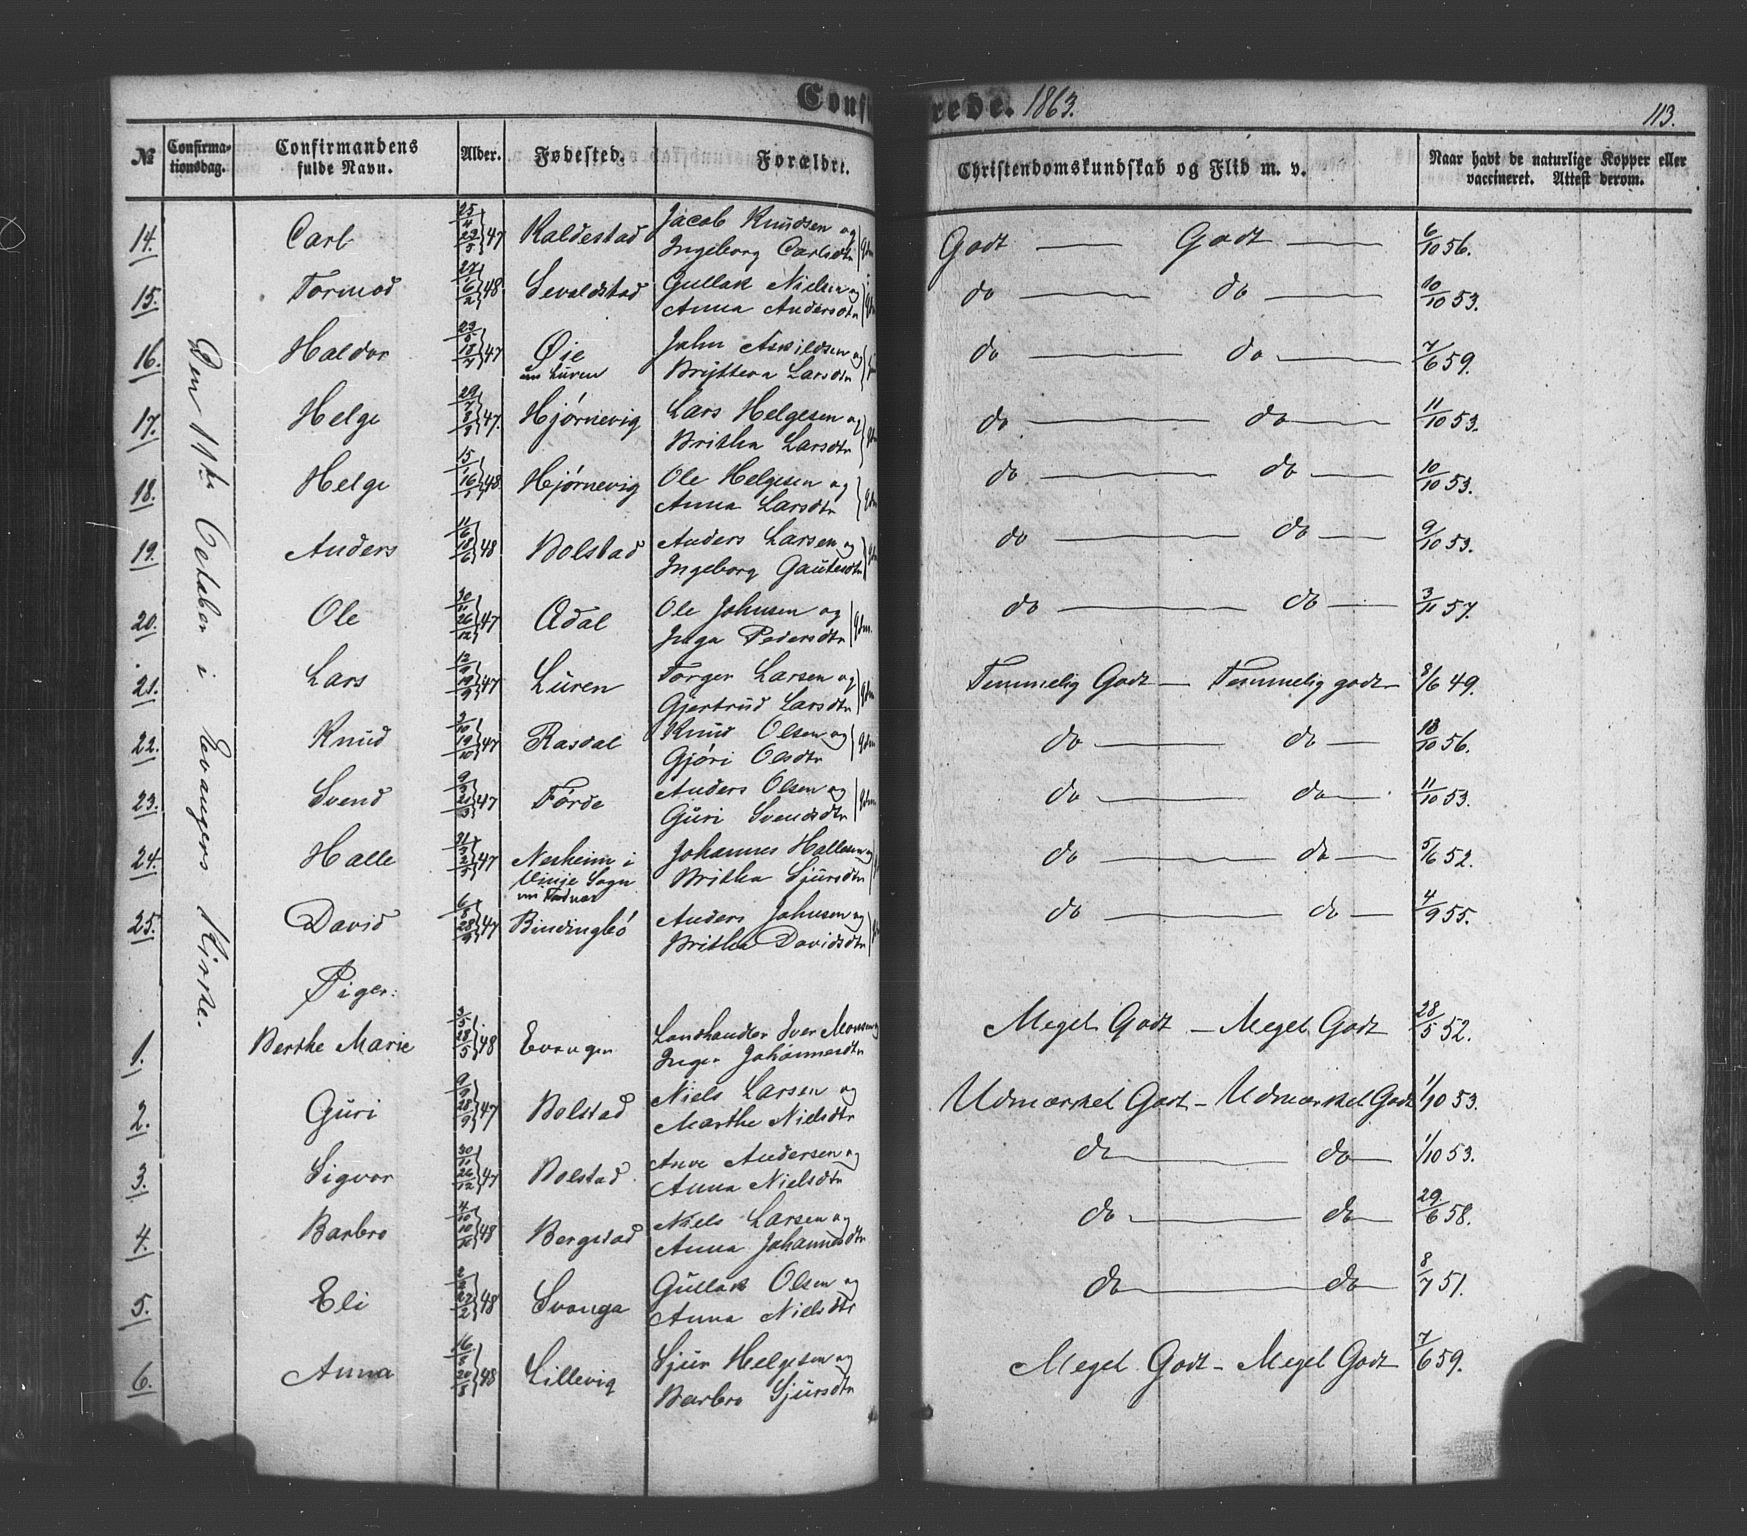 Conf rede. 1863. 113.
№ Confirmationsdag. Confirmandens fulde Navn. Alder. Fødested. Forældre. Christendomskundskab og Flid m. v. Naar havt de naturlige Kopper eller vaccineret. Attest derom.
Den 11te October i Evangers Kirke.
14. Carl 25/4 23/5 47 Kaldestad Jacob Knudsen og Godt — Godt — 6/10 56.
Ingeborg Carlsdtr
15. Tormod 27/1 6/2 48. Sevaldstad Gullak Nielsen og do — do — 10/10 53.
Anna Andersdtr
16. Haldor 23/5 18/7 47 Øie Jahn Askildsen og do — do — 7/6 59.
Luren Brytteva Larsdtr
17. Helge 29/7 8/9 47. Hjørnevig Lars Helgesen og do — do — 11/10 53.
Britha Larsdtr
18. Helge 15/1 16/1 48. Hjørnevig Ole Helgesen og do — do — 10/10 53.
Anna Larsdtr
19. Anders 11/6 18/6 48 Bolstad Anders Larsen og do — do — 9/10 53.
Ingeborg Gautesdtr
20. Ole 30/11 26/12 47 Ødal Ole Johnsen og do — do — 3/11 57.
Inga Pedersdtr
21. Lars 12/9 19/9 47 Luren Torger Larsen og Temmelig Godt — Temmelig godt 8/6 49.
Gjertrud Larsdtr
22. Knud 3/10 19/10 47 Rasdal Knud Olsen og do — do — 18/10 56.
Gjøri Olsdtr
23. Svend 9/3 20/3 47 Førde Anders Olsen og do — do — 11/10 53.
Guri Svendsdtr
24. Halle 31/3 2/5 47 Nesheim i Johannes Hallesen og do — do — 5/6 52.
Vinje Sogn Britha Sjursdtr
25. David 6/8 28/9 47 Bindingbø Anders Johnsen og do — do — 4/9 55.
Britha Davidsdtr
Piger:
1. Berthe Marie 3/5 28/5 48 Evanger Landhandler Iver Monsen og Meget Godt — Meget Godt 28/5 52.
Inger Johannesdtr
2. Guri 9/9 28/9 47 Bolstad Niels Larsen og Udmærket Godt — Udmærket Godt 1/10 53.
Marthe Nielsdtr
3. Sigvor 30/11 26/12 47 Bolstad. Arve Andersen og do — do — 1/10 53.
Anna Nielsdtr
4. Barbro 4/10 10/10 48 Bergstad Niels Larsen og do — do — 29/6 58.
Anna Johannesdtr
5. Eli 2/2 22/2 48 Svanga Gullak Olsen og do — do — 8/7 51.
Anna Nielsdtr
6. Anna 16/8 20/8 48 Lillevig Sjur Helgesen og Meget Godt — Meget Godt 7/6 59.
Barbro Sjursdtr